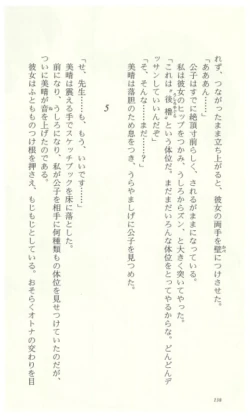 れず、つながったまま立ち上がると、彼女の両手を壁につけさせた。
「あああん……」
公子はすでに絶頂寸前らしく、されるがままになっている。
私は彼女のヒップをつかみ、うしろからズン、と大きく突いてやった。
「これは〝後櫓〟という体位だ。まだまだいろんな体位をとってやるからな。どんどんデ
ッサンしていいんだぞ」
「そ、そんな……まだ……？」
美晴は落胆のため息をつき、うらやましげに公子を見つめた。
5
「せ、先生……も、もう、いいです……」
美晴は震える手でスケッチブックを床に落とした。
前になり、うしろになり、私が公子を相手に何種類もの体位を見せつけていたのだが、
ついに美晴が音を上げたのである。
彼女はふとももつけ根を押さえ、もじもじとしている。おそらくオトナの交わりを目